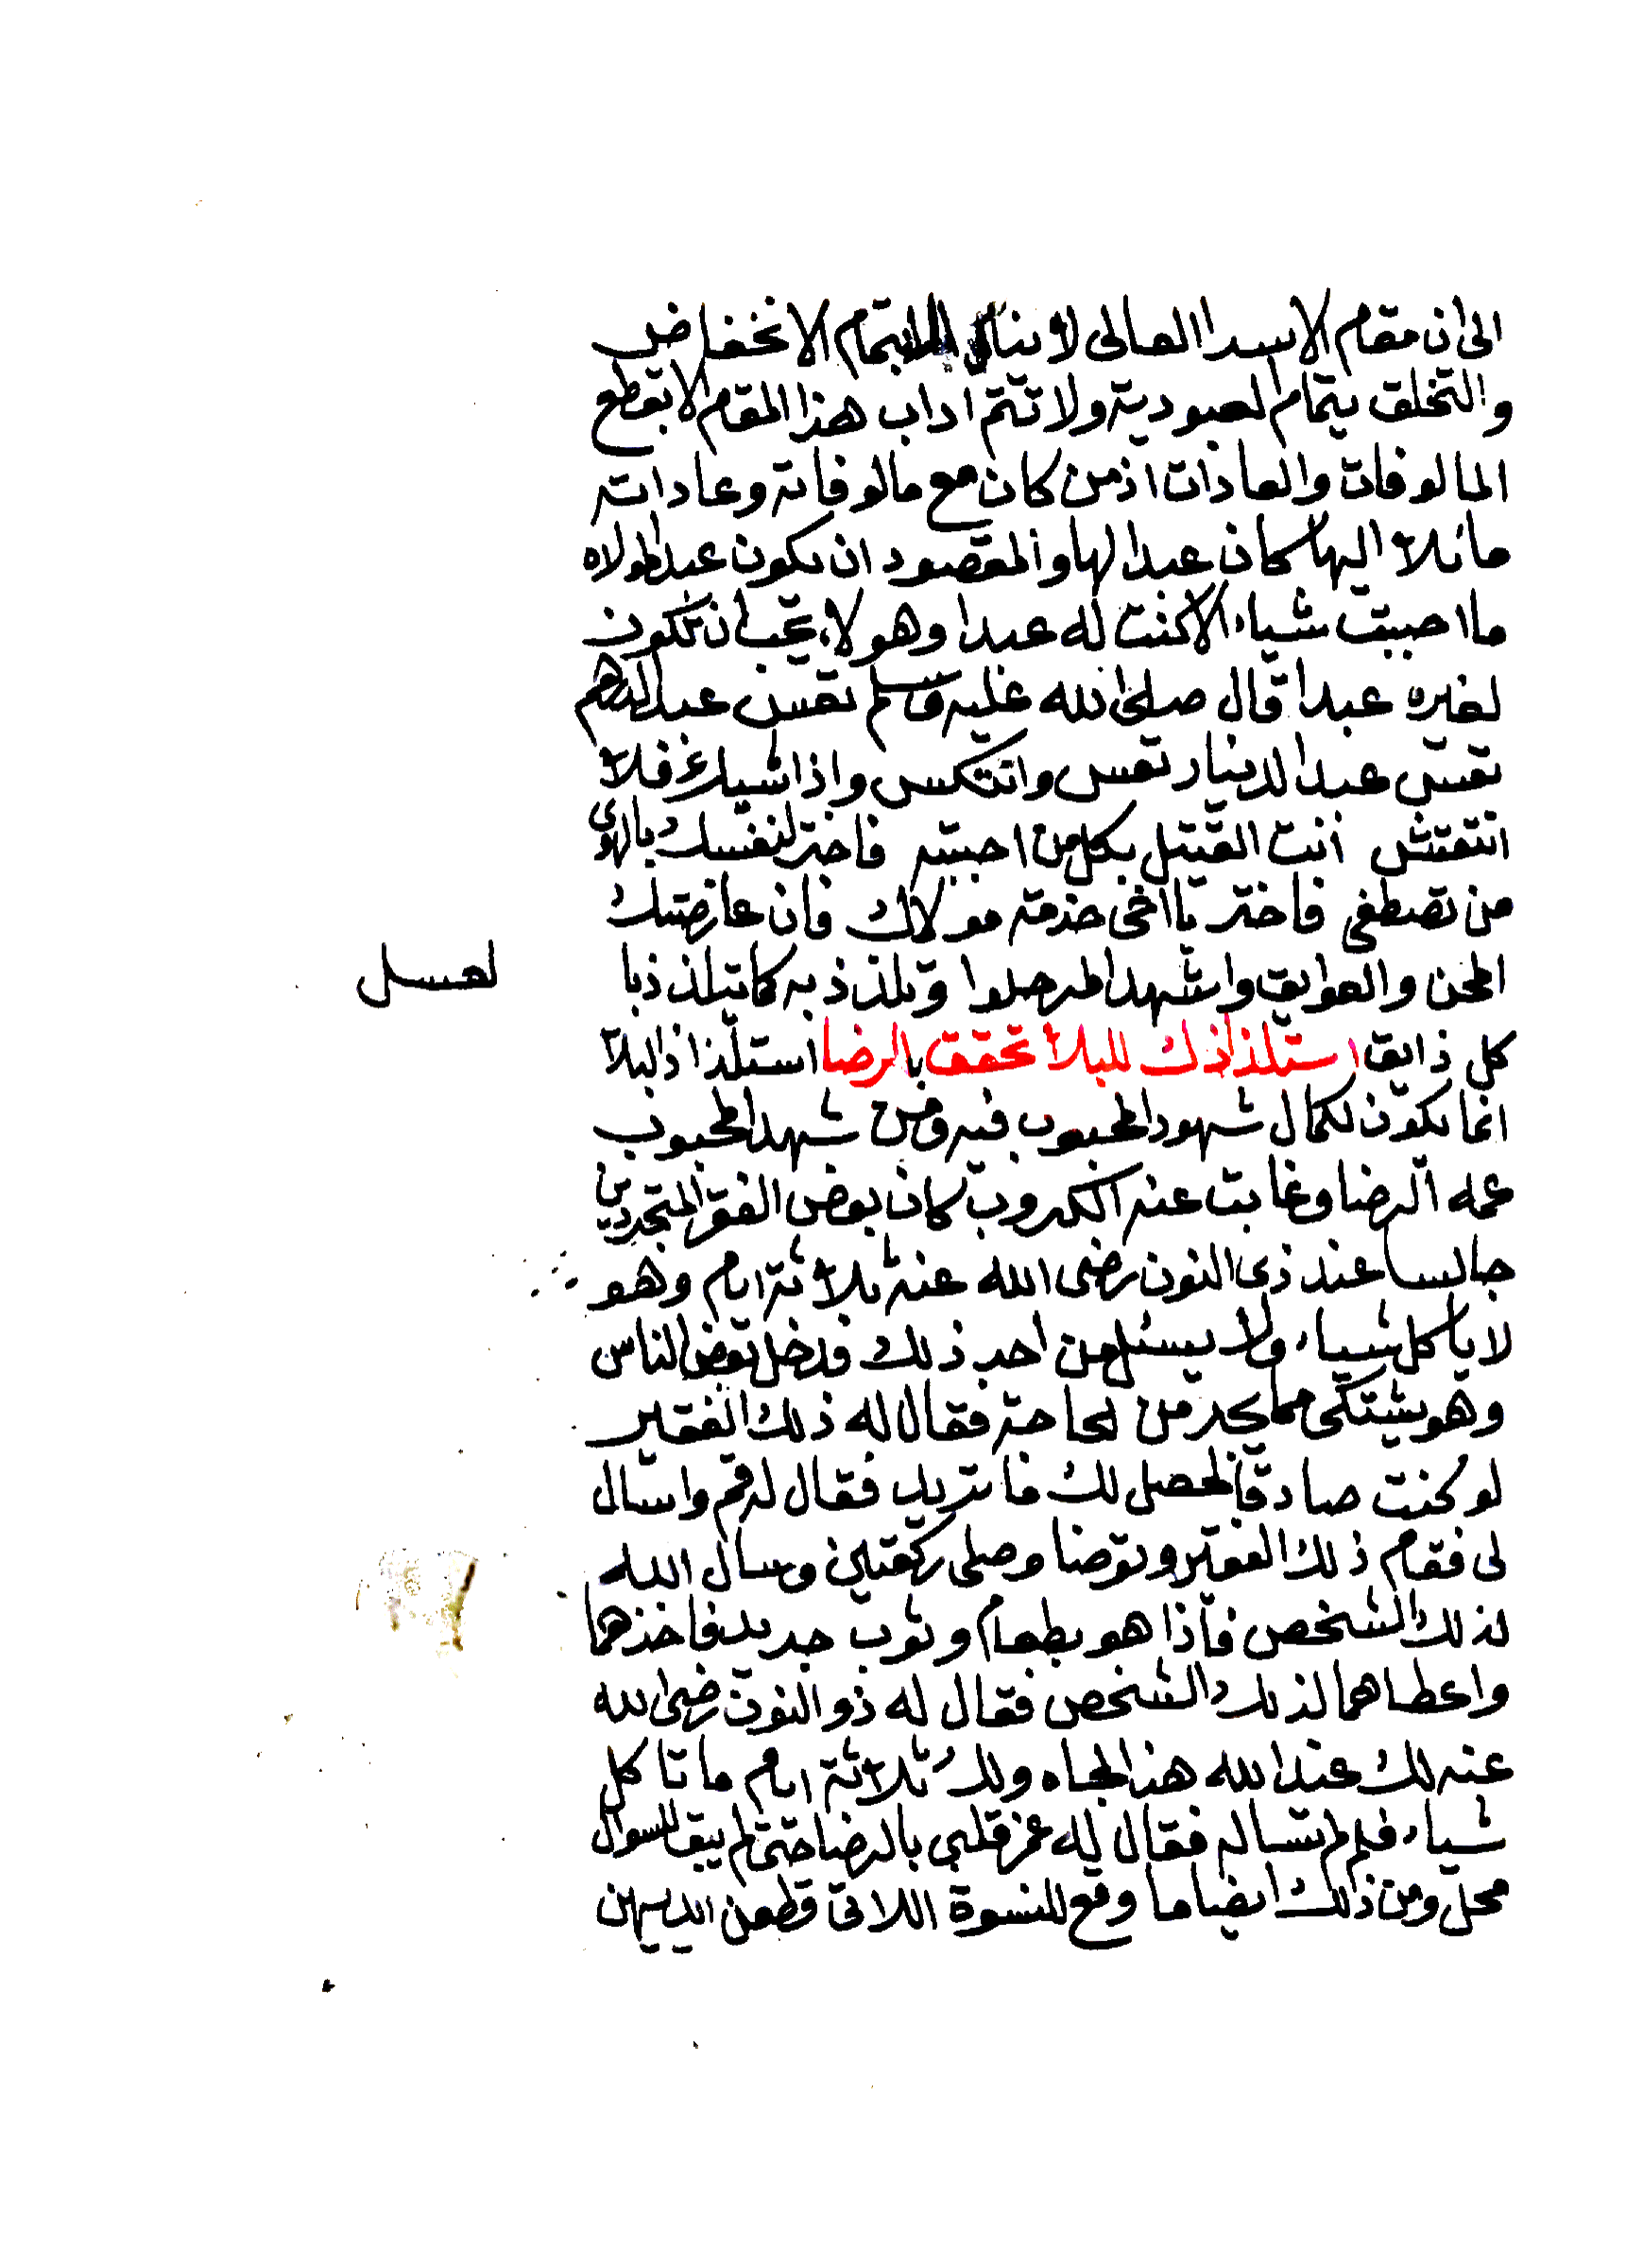 الى ان مقام الاسد العالى لا ينال الا بتمام الانخفاض
والتخلق بتمام العبودية ولا تتم اداب هذا المقام الا بقطع
المالوفات والعادات اذ من كان مع مالوفاته وعاداته
مائلا اليها كان عبدا لها والمقصود ان يكون عبدا لمولاه
ما احببت شياء الا كنت له عبدا وهو لا يحب ان تكون
لغيره عبدا قال صلى الله عليه وسلم تعس عبد الدرهم
تعس عبد الدينار تعس وانتكس واذا شيك فلا
انتقش انت القتيل بكل من احببته فاختر لنفسك بالهوى
من تصطفى فاختر يا اخى خدمة مولاك فان عارضتك
المحن والعوايق واشهد المر حلوا وتلذذ به كما يتلذذ با
لعسل
كل ذايق استلذاذك للبلا تحقق بالرضا استلذاذ البلا
انما يكون لكمال شهود المحبوب فيه ومن شهد المحبوب
عمه الرضا وغابت عنه الكروب كان بعض الفقرا المتجردين
جالسا عند ذى النون رضى الله عنه ثلاثة ايام وهو
لا ياكل شياء ولا يسئل من احد ذلك فدخل بعض الناس
وهو يشتكى مما يجد من الحاجة فقال له ذلك الفقير
لو كنت صادقا لحصل لك ما تريد فقال له قم واسال
لى فقام ذلك الفقير وتوضا وصلى ركعتين وسال الله
لذلك الشخص فاذا هو بطعام وثوب جديد فاخذهما
واعطاهما لذلك الشخص فقال له ذو النون رضى الله
عنه لك عند الله هذا الجاه ولك ثلاثة ايام ما تاكل
شياء فلم لم تساله فقال له عمر قلبى بالرضا حتى لم يبق للسوال
محل ومن ذلك ايضا ما وقع للنسوة اللاتى قطعن ايديهن